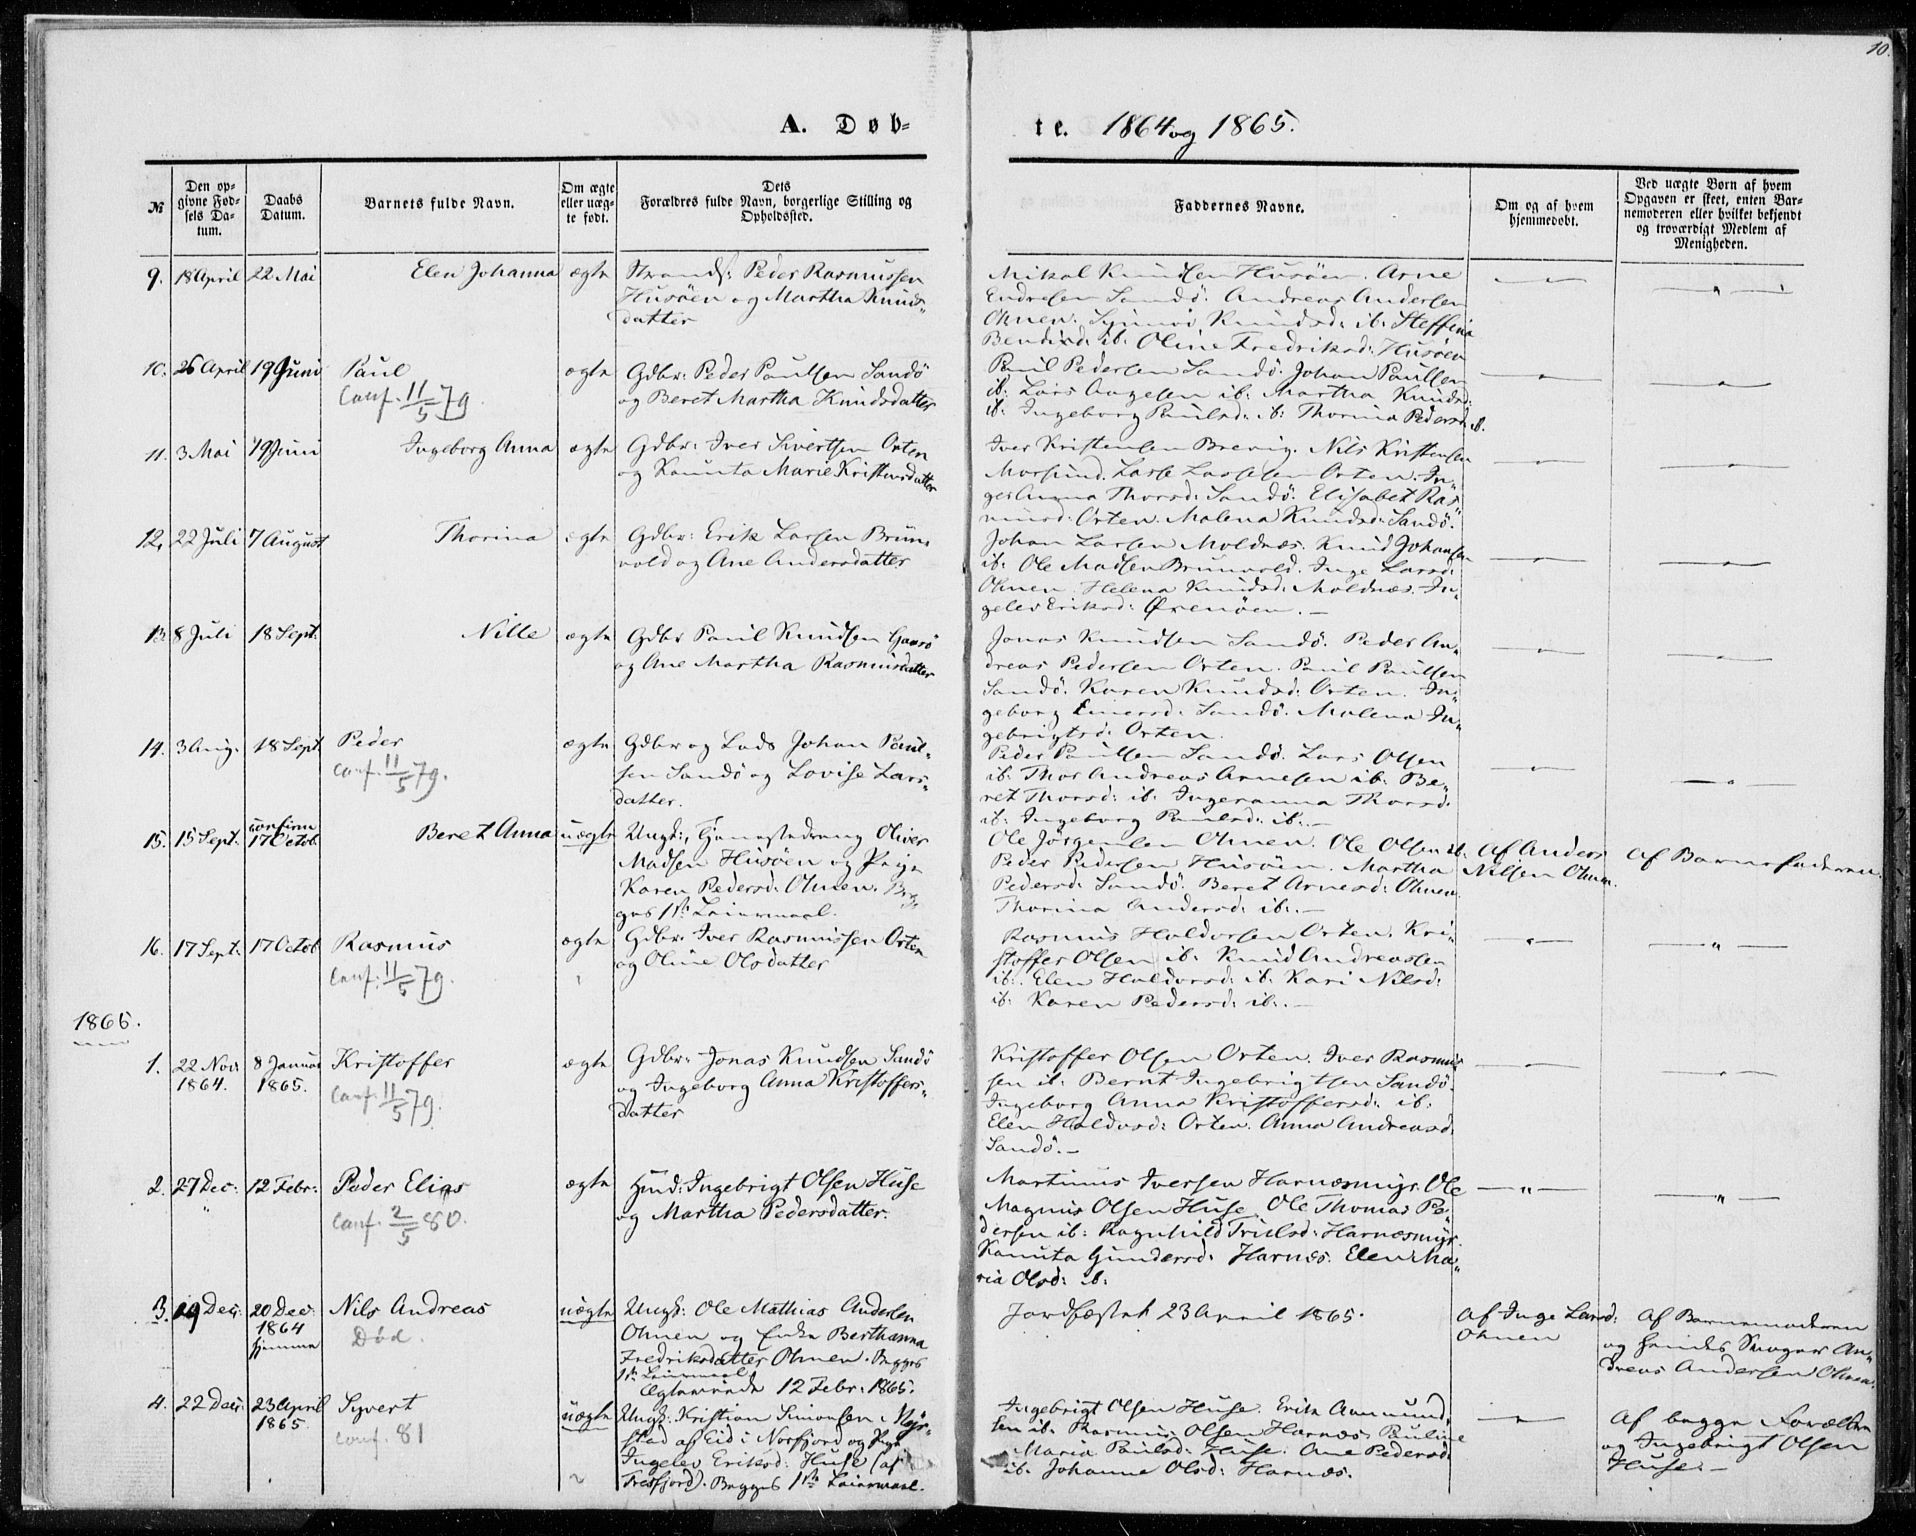 10.
A. Døb-
te. 1864 og 1865.
№
Den op-
givne Fød-
sels Da-
tum.
Daabs
Datum.
Barnets fulde Navn.
Om ægte
eller uæg-
te født.
Dets
Forældres fulde Navn, borgerlige Stilling og
Opholdssted.
Faddernes Navne.
Om og af hvem
hjemmedøbt.
Ved uægte Børn af hvem
Opgaven er skeet, enten Bar-
nemoderen eller hvilket bekjendt
og troværdigt Medlem af
Menigheden.
9. 18 April 22 Mai Elen Johanna ægte
Strands: Peder Rasmussen
Husöen og Martha Knuds-
datter
Mikal Knudsen Husöen. Arne
Endresen Sandö. Andreas Andersen
Ohnen. Synnøi Knudsd: ib: Steffina
Bendixd: ib: Oline Fredriksd: Husöen
10. 26 April 19 Juni Paul ægte
Conf. 11/5 79.
Gdbr: Peder Paulsen Sandö
og Beret Martha Knudsdatter
Paul Pedersen Sandö. Johan Paulsen
ib: Lars Aagesen ib: Martha Knudsd:
ib: Ingeborg Paulsd: ib: Thorina Pedersd: ib.
11. 3 Mai 19 Juni Ingeborg Anna ægte
Gdbr: Iver Sivertsen Orten
og Kanuta Marie Kristensdatter
Iver Kristensen Brevig. Nils Kristensen
Morsund. Lasse Lassesen Orten. In-
geranna Thorsd: Sandö. Elisabet Ras-
musd: Orten. Malena Knudsd: Sandö.
12. 22 Juli 7 August Thorina ægte
Gdbr: Erik Larsen Brun-
vold og Ane Andersdatter
Johan Larsen Moldnæs. Knud Johansen
ib: Ole Madsen Brunvold. Inge Larsd:
Ohnen. Helena Knudsd: Moldnæs. In-
gelev Eriksd: Örenöen.–
13. 8 Juli 18 Sept: Nille ægte
Gdbr Paul Knudsen Gaasö
og Ane Martha Rasmusdatter
Jonas Knudsen Sandö. Peder An-
dreas Pedersen Orten. Paul Paulsen
Sandö. Karen Knudsd: Orten. In-
geborg Einersd: Sandö. Malena In-
gebrigtsd: Orten.
14. 3 Aug. 18 Sept Peder ægte
Conf. 11/5 79.
Gdbr og Lods Johan Paul-
sen Sandö og Lovise Lars-
datter.
Peder Paulsen Sandö. Lars Olsen
ib: Thor Andreas Arnesen ib: Be-
ret Thorsd: ib: Ingeranna Thorsd:
ib: Ingeborg Paulsd: ib.–
15. 15 Sept: confirm 17 Octob. Beret Anna uægte
Ungk:, Tjenestedreng Oliver
Madsen Husöen og Pige
Karen Pedersd: Ohnen. Beg-
ges 1ste Leiermaal.
Ole Jörgensen Ohnen. Ole Olsen ib.
Peder Pedersen Husöen. Martha
Pedersd: Sandö. Beret Arnesd: Ohnen
Thorina Andersd: ib:.–
Af Anders
Nilsen Ohnen.
Af Barnefaderen.
16. 17 Sept: 17 Octob Rasmus ægte
Conf: 11/5 79.
Gdbr: Iver Rasmussen Orten
og Oline Olsdatter
Rasmus Haldorsen Orten. Kri-
stoffer Olsen ib: Knud Andreassen
ib: Elen Haldorsd: ib: Kari Nilsd:
ib: Karen Pedersd: ib:.–
1865.
1. 22 Nov: 8 Januar Kristoffer ægte
1864. 1865.
Conf. 11/5 79.
Gdbr: Jonas Knudsen Sandö
og Ingeborg Anna Kristoffers-
datter
Kristoffer Olsen Orten. Iver Rasmus-
sen ib: Bernt Ingebrigtsen Sandö
Ingeborg Anna Kristoffersd: ib:
Elen Haldorsd: Orten. Anna Andreasd:
Sandö.–
2. 27 Dec: 12 Febr: Peder Elias ægte
Conf. 2/5 80.
Hmd: Ingebrigt Olsen Huse
og Martha Pedersdatter.
Martinus Iversen Harnæsmyr. Ole
Magnus Olsen Huse. Ole Thomas Pe-
dersen ib: Ragnhild Trulsd: Harnæsmyr.
Kanuta Gundersd: Harnæs. Elen Ma-
ria Olsd: ib:
3. 19 Dec: 20 Dec: Nils Andreas uægte
1864
hjemme
Död.
Ungk: Ole Mathias Andersen
Ohnen og Enke Berthanna
Fredriksdatter Ohnen. Begges
1ste Leiermaal
Ægteviede 12 Febr: 1865.
Jordfæstet 23 April 1865.
Af Inge Larsd:
Ohnen
Af Barnemoderen
og hendes Svoger An-
dreas Andersen Ohnen.
4. 22 Dec: 23 April Syvert uægte
1865.
conf. 81
Ungk: Kristian Simonsen Myr-
stad af Eid i Norfjord og Pige
Ingelev Eriksd: Huse (af
Tresfjord). Begges 1ste Leiermaal.
Ingebrigt Olsen Huse. Erik Aamund-
sen ib. Rasmus Olsen Harnæs. Pauline
Maria Paulsd: Huse. Ane Pedersd:
ib. Johanne Olsd: Harnæs.
Af begge Forældre
og Ingebrigt Olsen
Huse.–